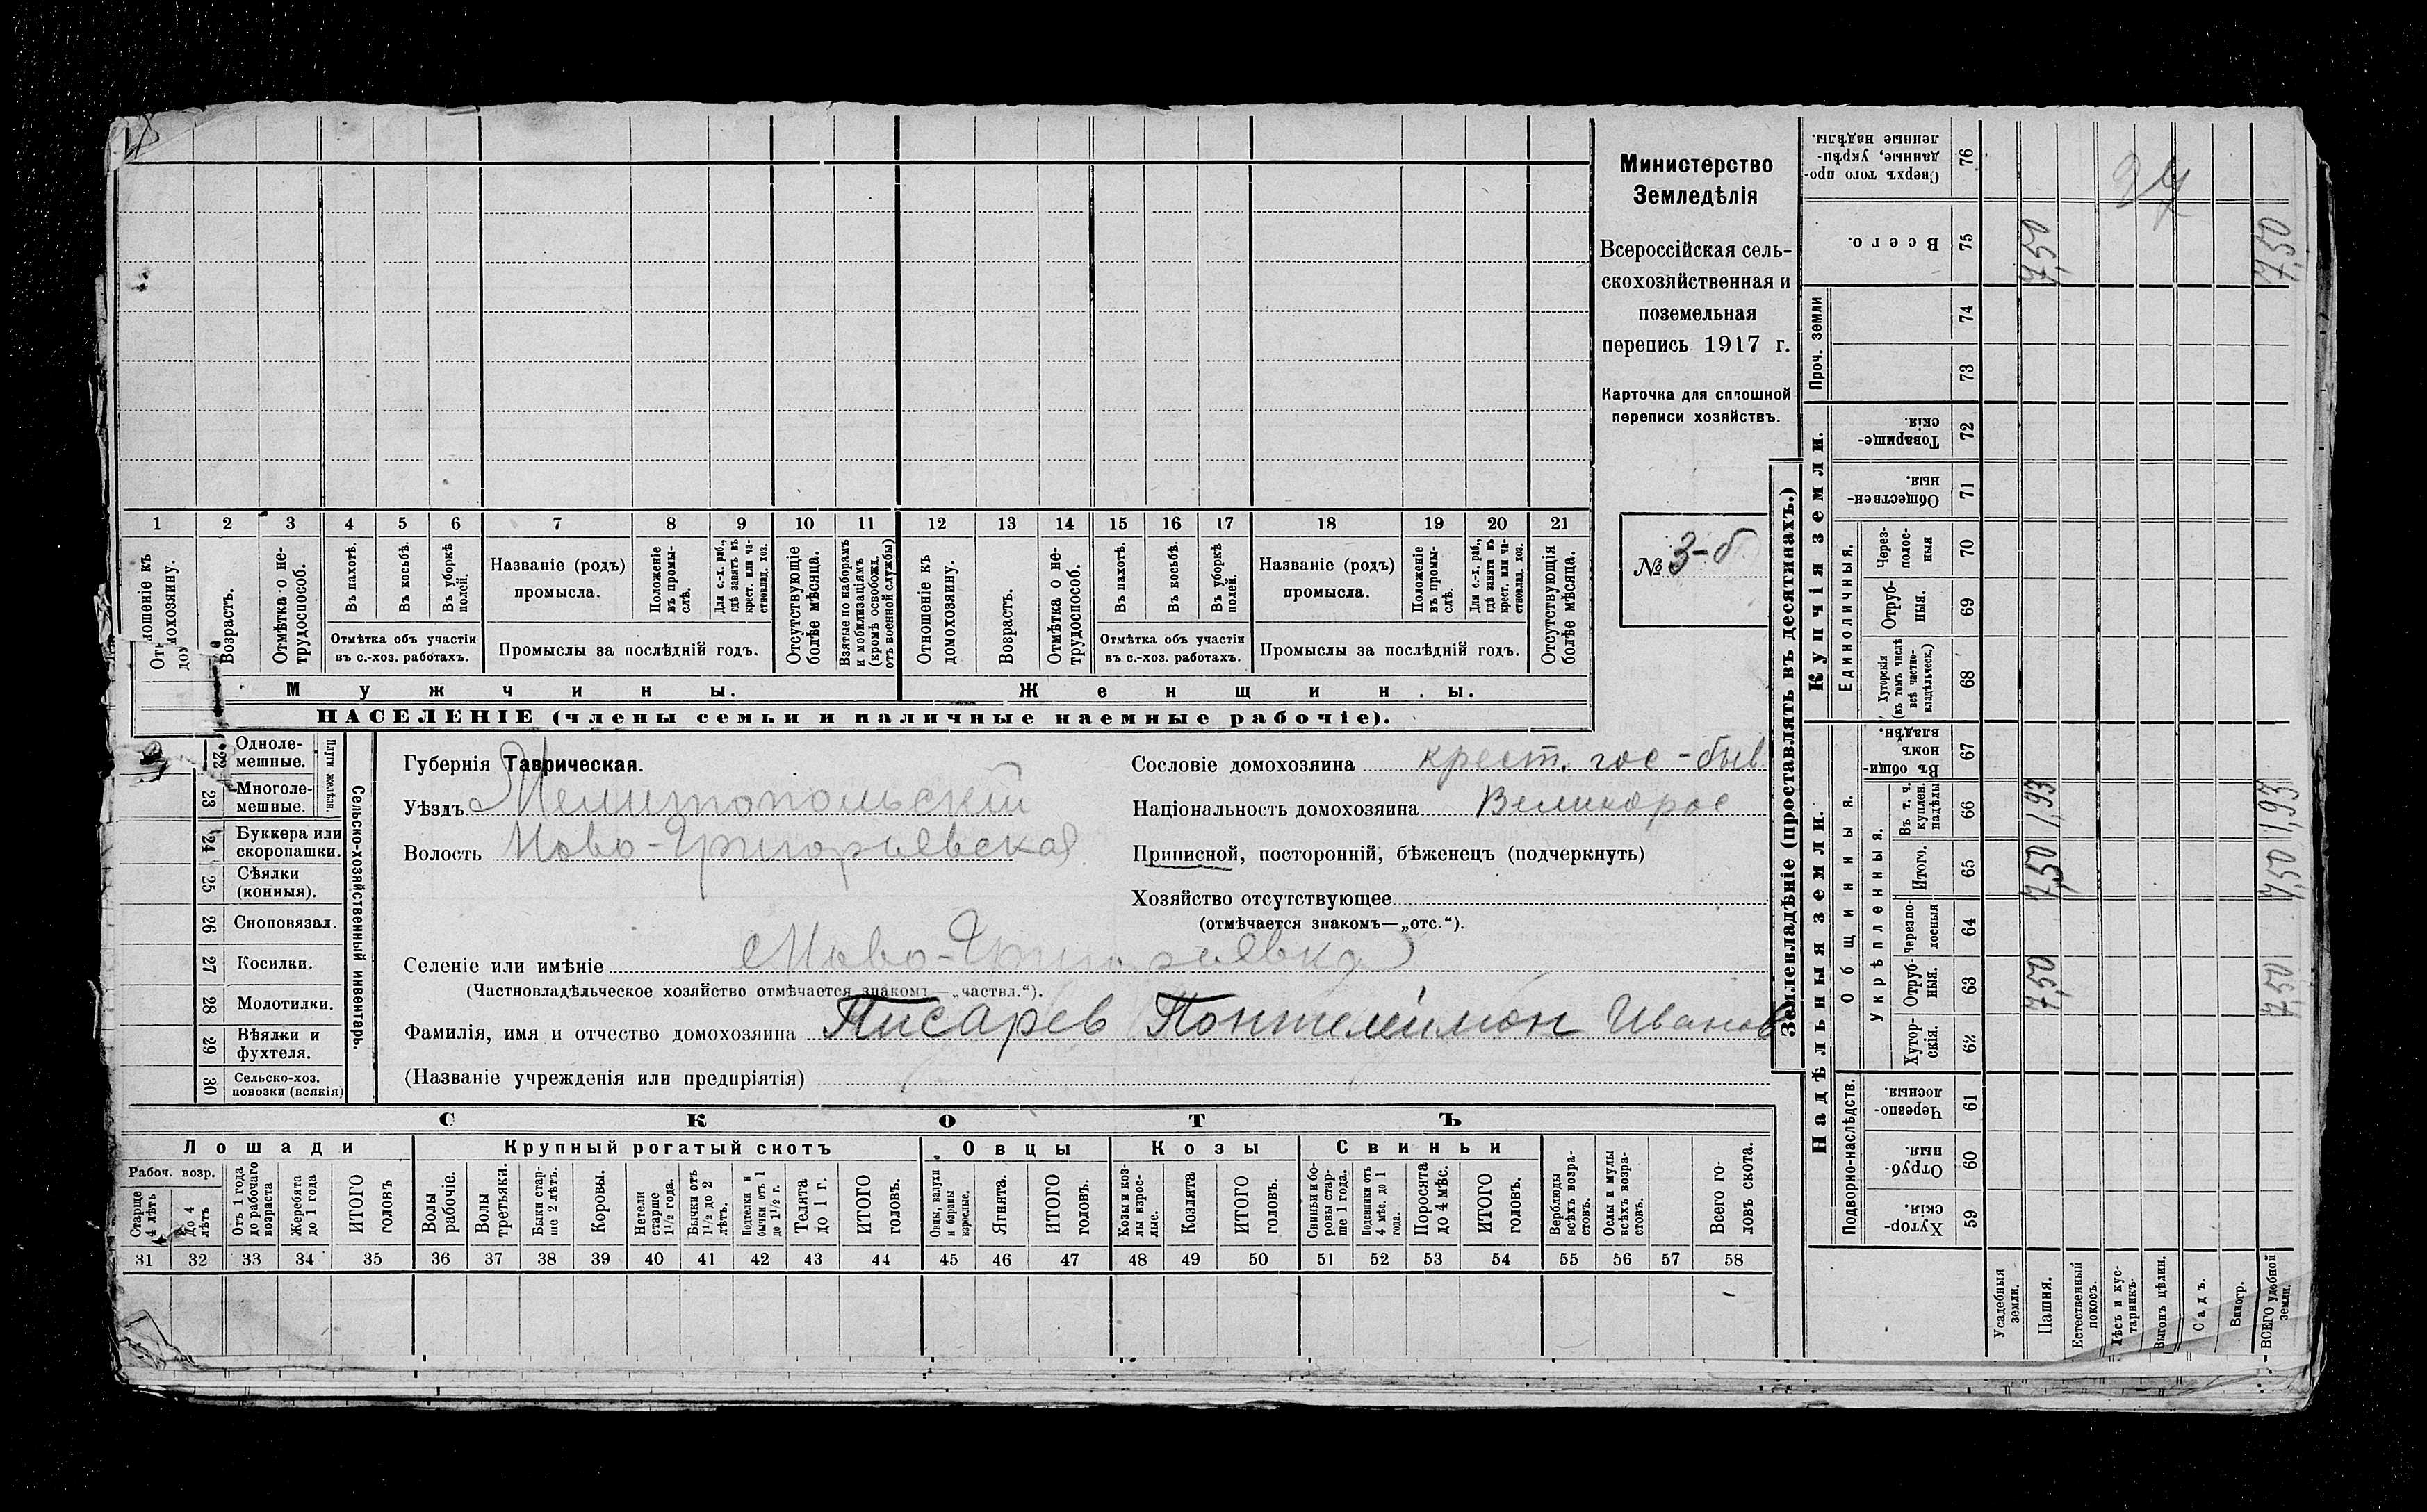 Министерство
Земледѣлія
Всероссійская сель-
скохозяйственная и
поземельная
перепись 1917 г.
Карточка для сплошной
переписи хозяйствъ.
№ 3-б
1 2 3 4 5 6 7 8 9 10 11 12 13 14 15 16 17 18 19 20 21
Отношеніе къ домохозяину.
Возрастъ.
Отмѣтка о не-
трудоспособ.
Въ пахотѣ.
Въ косьбѣ.
Въ уборкѣ
полей.
Отмѣтка объ участіи
въ с.-хоз. работахъ.
Названіе (родъ)
промысла.
Положеніе
въ промы-
слѣ.
Для с.-х. раб.,
гдѣ занятъ въ
крест. или ча-
стновлад. хоз.
Промыслы за послѣдній годъ.
Отсутствующіе
болѣе мѣсяца.
Взятые по наборамъ
и мобилизаціямъ
(кромѣ освобожд.
отъ военной службы)
Отношеніе къ
домохозяину.
Возрастъ.
Отмѣтка о не-
трудоспособ.
Въ пахотѣ.
Въ косьбѣ.
Въ уборкѣ
полей.
Отмѣтка объ участіи
въ с.-хоз. работахъ.
Названіе (родъ)
промысла.
Положеніе
въ промы-
слѣ.
Для с.-х. раб.,
гдѣ занята въ
крест. или ча-
стновлад. хоз.
Промыслы за послѣдній годъ.
Отсутствующія
болѣе мѣсяца.
Мужчины.
Женщины.
НАСЕЛЕНІЕ (члены семьи и наличные наемные рабочіе).
22 Одноле-
мешные.
23 Многоле-
мешные.
Плуги желѣзн.
24 Буккера или
скоропашки.
25 Сѣялки
(конныя).
26 Сноповязал.
27 Косилки.
28 Молотилки.
29 Вѣялки и
фухтеля.
30 Сельско-хоз.
повозки (всякія)
Сельско-хозяйственный инвентарь.
Губернія Таврическая.
Уѣздъ Мелитопольскій
Волость Ново-Григорьевская
Сословіе домохозяина крест. гос-быв
Національность домохозяина Великорос
Приписной, посторонній, бѣженецъ (подчеркнуть)
Хозяйство отсутствующее
(отмѣчается знакомъ—„отс.“).
Селеніе или имѣніе Ново-Григорьевка
(Частновладѣльческое хозяйство отмѣчается знакомъ—„частвл.“).
Фамилія, имя и отчество домохозяина Писарев Понтелеимон Иванов
(Названіе учрежденія или предпріятія)
СКОТЪ
Лошади
Крупный рогатый скотъ
Овцы
Козы
Свиньи
Рабоч. возр.
Старше
4 лѣтъ
До 4
лѣтъ
Отъ 1 года
до рабочаго
возраста
Жеребята
до 1 года
ИТОГО
головъ
Волы
рабочіе.
Волы
третьяки.
Быки стар-
ше 2 лѣтъ.
Коровы.
Нетели
старше
1½ года.
Бычки отъ
1½ до 2
лѣтъ.
Подтелки и
бычки отъ 1
до 1½ г.
Телята
до 1 г.
ИТОГО
головъ.
Овцы, валухи
и бараны
взрослые.
Ягнята.
ИТОГО
головъ.
Козы и коз-
лы взрос-
лые.
Козлята
ИТОГО
головъ.
Свиньи и бо-
ровы стар-
ше 1 года.
Подсвинки отъ
4 мѣс. до 1
года.
Поросята
до 4 мѣс.
ИТОГО
головъ.
Верблюды
всѣхъ возра-
стовъ.
Ослы и мулы
всѣхъ возра-
стовъ.
Всего го-
ловъ скота.
31 32 33 34 35 36 37 38 39 40 41 42 43 44 45 46 47 48 49 50 51 52 53 54 55 56 57 58
Землевладѣніе (проставлять въ десятинахъ.)
Надѣльныя земли.
Подворно-наслѣдств.
Хутор-
скія. 59
Отруб-
ныя. 60
Черезпо-
лосныя 61
Общинныя.
Укрѣпленныя.
Хутор-
скія. 62
Отруб-
ныя. 63 7,50 7,50
Черезпо-
лосныя 64
Итого. 65 7,50 7,50
Въ т. ч.
куплен.
надѣлы 66 1,93 1,93
Въ общи-
номъ
владѣн. 67
Купчія земли.
Единоличныя.
Хуторскія
(въ томъ числѣ
всѣ частно-
владѣльческ.) 68
Отруб-
ныя. 69
Через-
полос-
ныя 70
Обществен-
ныя. 71
Товарище-
скія. 72
Проч. земли
73
74
Всего. 75 7,50 7,50
Сверхъ того про-
данные, укрѣп-
ленные надѣлы. 76
Усадебныя
земли.
Пашня.
Естественный
покосъ.
Лѣсъ и кус-
тарникъ.
Выгонъ цѣлин.
Садъ.
Виногр.
ВСЕГО удобной
земли.